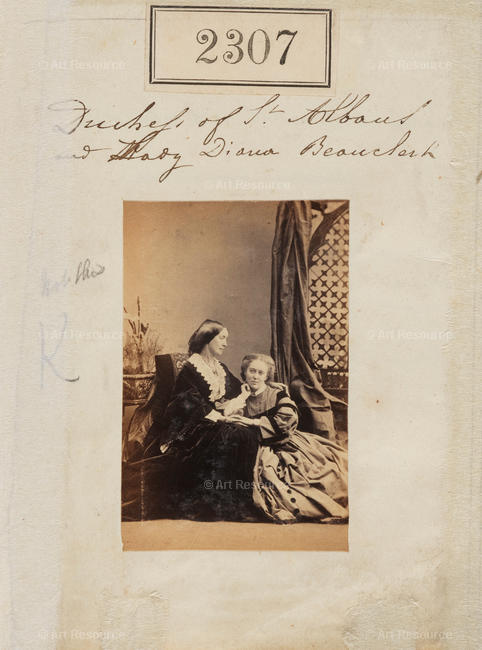 2307
Duchess of St. Albans
and Lady Diana Beauclerk
K
© Art Resource
© Art Resource
© Art Resource
© Art Resource
© Art Resource
© Art Resource
© Art Resource
© Art Resource
© Art Resource